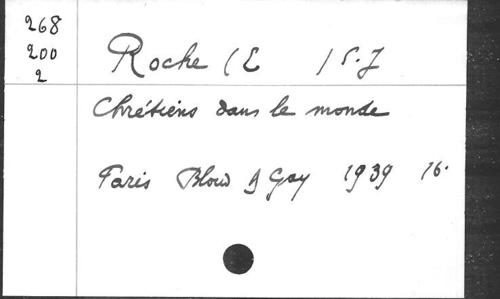 268
200
2
Roche (E ) S.J
Chrétiens dans le monde
Paris Bloud & Gay 1939 16.